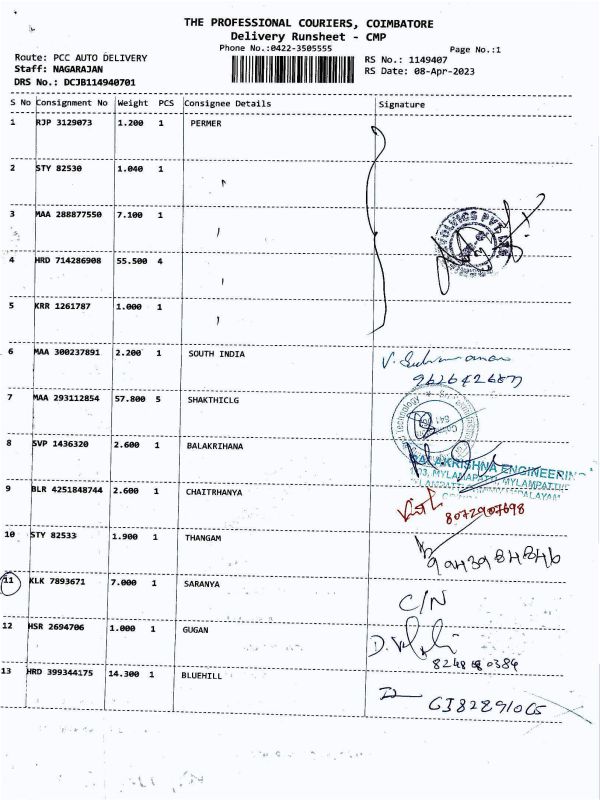 THE PROFESSIONAL COURIERS, COIMBATORE
Delivery Runsheet - CMP
Phone No.:0422-3505555
Page No.:1
Route: PCC AUTO DELIVERY
RS No.: 1149407
Staff: NAGARAJAN
RS Date: 08-Apr-2023
DRS No.: DCJB114940701
S No Consignment No Weight PCS Consignee Details Signature
1 RJP 3129073 1.200 1 PERMER
2 STY 82530 1.040 1
3 MAA 288877550 7.100 1
4 HRD 714286908 55.500 4
5 KRR 1261787 1.000 1
6 MAA 300237891 2.200 1 SOUTH INDIA
7 MAA 293112854 57.800 5 SHAKTHICLG
8 SVP 1436320 2.600 1 BALAKRIHANA
BALAKRISHNA ENGINEERING
MYLAMPATTI, MYLAMPATTI
9 BLR 4251848744 2.600 1 CHAITRHANYA
8072907698
10 STY 82533 1.900 1 THANGAM
11 KLK 7893671 7.000 1 SARANYA
C/N
12 HSR 2694706 1.000 1 GUGAN
13 HRD 399344175 14.300 1 BLUEHILL